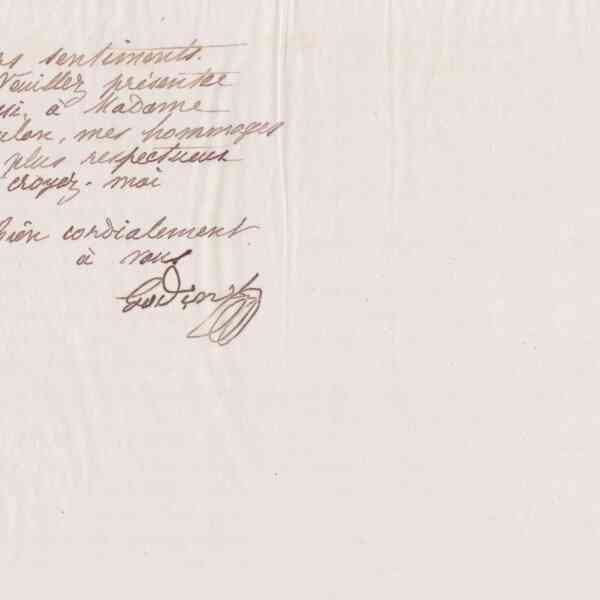 sentiments.
Veuillez présenter
à Madame
mes hommages
plus respectueux
croyez-moi
bien cordialement
à vous